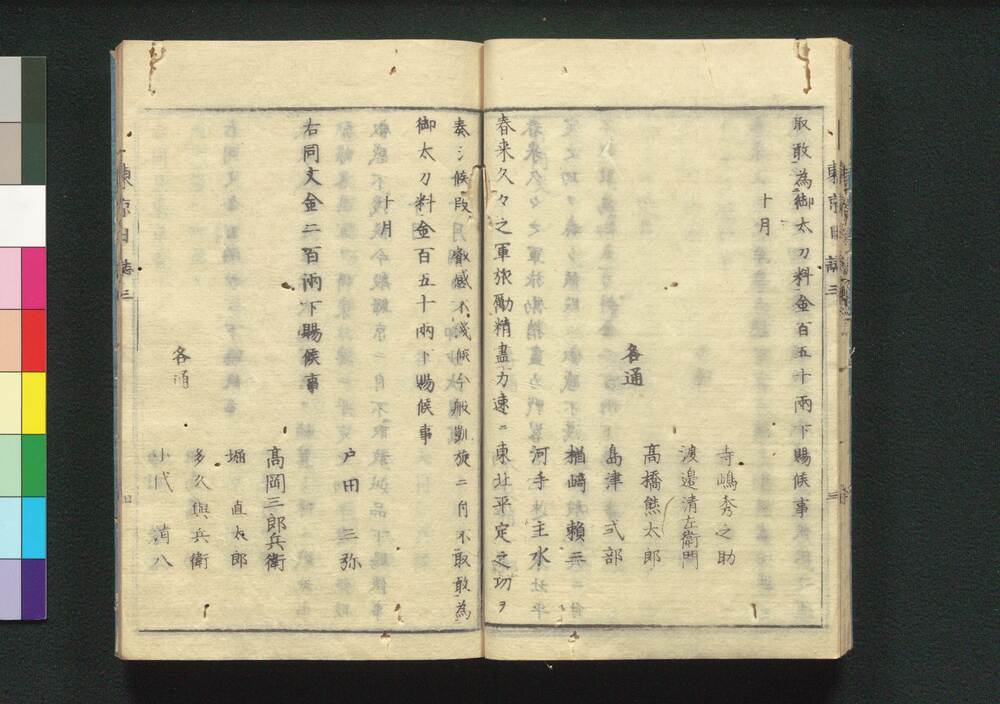 取敢為御太刀料金百五十兩下賜候事
十月
寺嶋秀之助
渡邉清左衛門
各通
髙橋熊太郎
島津式部
楢﨑頼三
河手主水
春来久々之軍旅勵精盡力速ニ東北平定之功ヲ
奏シ候段叡感不浅候今般凱旋ニ付不取敢為
御太刀料金百五十兩下賜候事
十月
戸田三弥
右同文金二百兩下賜候事
髙岡三郎兵衛
堀直太郎
各通
多久與兵衛
小代
東京日誌三
東京日誌三